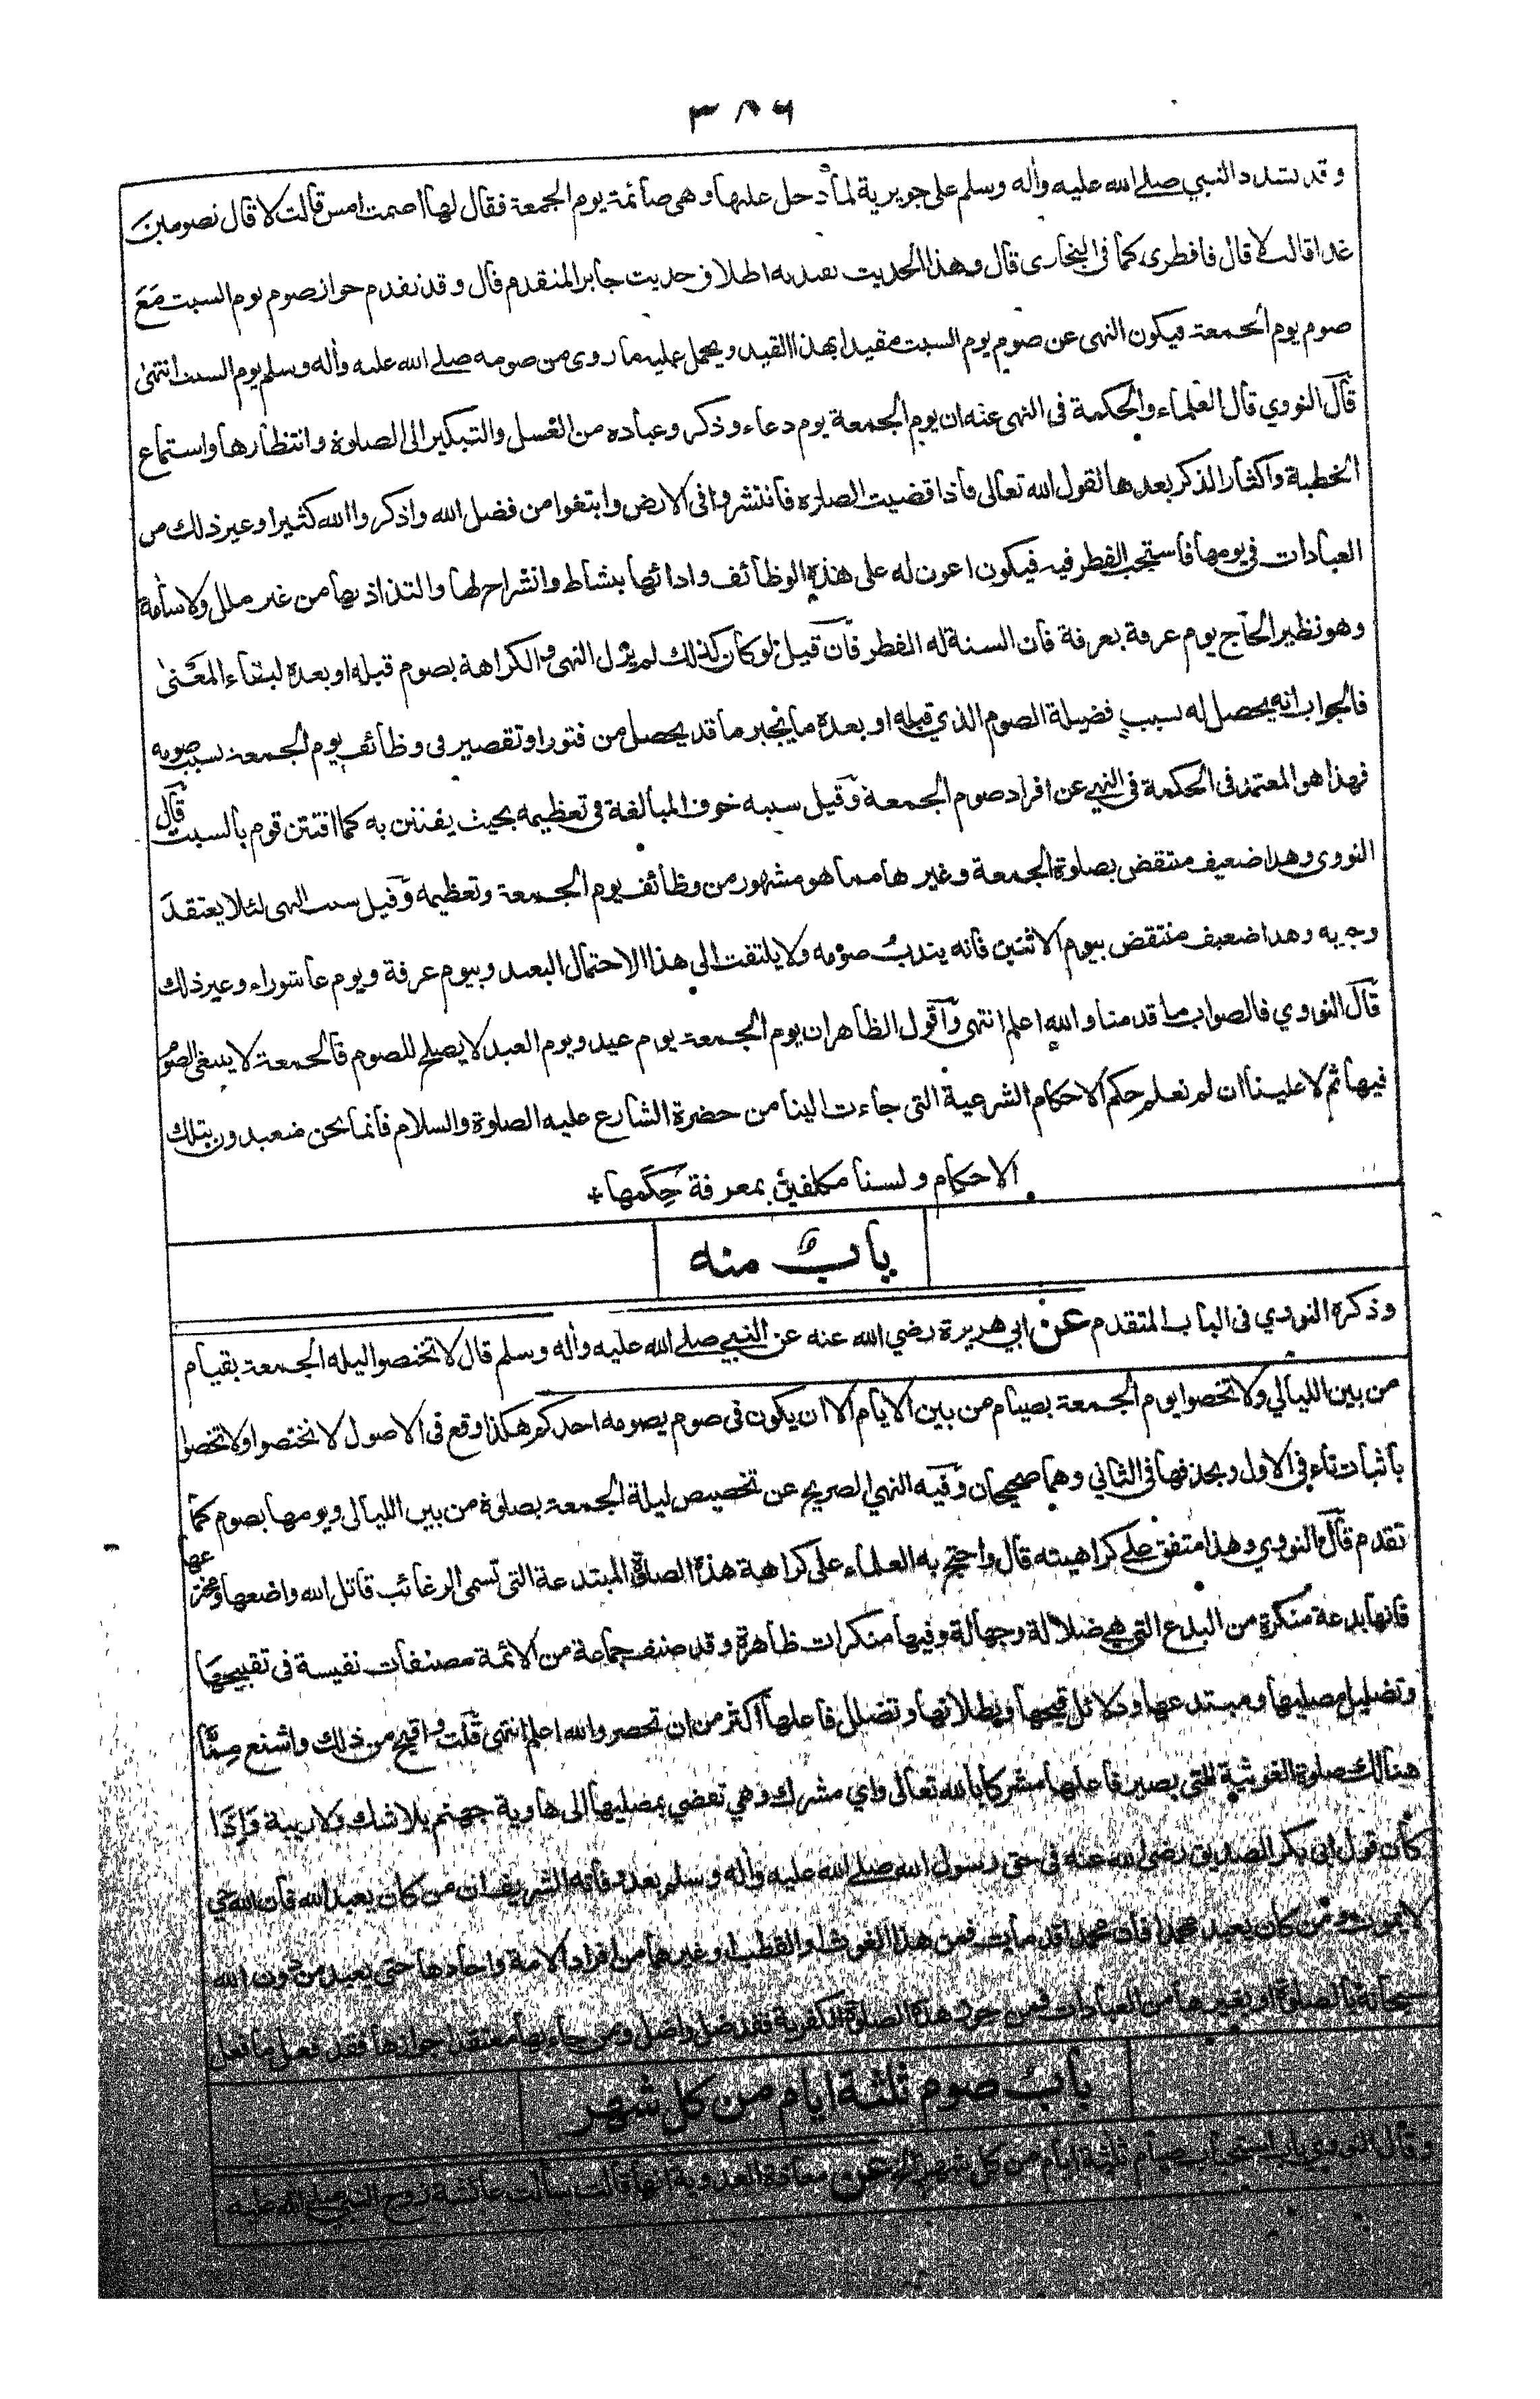 ٣٨٦
وقد شدد النبي صلے الله عليه واٰله وسلم على جويرية لما دخل عليها وهى صائمة يوم الجمعة فقال لها أصمت امس قالت لا قال تصومين
غدا قالت لا قال فافطرى كما فى البخارى قال وهذا الحديث يقيد به اطلاق حديث جابر المتقدم قال وقد تقدم جواز صوم يوم السبت مَعَ
صوم يوم الجمعة فيكون النهى عن صوم يوم السبت مقيدا بهذا القيد ويحمل عليه ما روى من صومه صلے الله عليه واٰله وسلم يوم السبت انتهىٰ
قال النووي قال العلماء والحكمة فى النهى عنه ان يوم الجمعة يوم دعاء وذكر وعبادة من الغسل والتبكير الى الصلوة وانتظارها واستماع
الخطبة واكثار الذكر بعدها لقول الله تعالى فاذا قضيت الصلوة فانتشروا فى الارض وابتغوا من فضل الله واذكروا الله كثيرا وغير ذلك من
العبادات فى يومها فاستحب الفطر فيه فيكون اعون له على هذه الوظائف وادائها بنشاط وانشراح لها والتذاذ بها من غير ملل ولا سأمة
وهو نظير الحاج يوم عرفة بعرفة فان السنة له الفطر فان قيل لو كان كذلك لم يزل النهى والكراهة بصوم قبله او بعده لبقاء المعنىٰ
فالجواب انه يحصل له بسبب فضيلة الصوم الذي قبله او بعده ما يجبر ما قد يحصل من فتور او تقصير فى وظائف يوم الجمعة بسبب صومه
فهذا هو المعتمد فى الحكمة فى النهي عن افراد صوم الجمعة وقيل سببه خوف المبالغة فى تعظيمه بحيث يفتتن به كما افتتن قوم بالسبت قال
النووى وهذا ضعيف منتقض بصلوة الجمعة وغيرها مما هو مشهور من وظائف يوم الجمعة وتعظيمه وقيل سبب النهى لئلا يعتقدَ
وجوبه وهذا ضعيف منتقض بيوم الاثنين فانه يندب صومه ولا يلتفت الى هذا الاحتمال البعيد وبيوم عرفة ويوم عاشوراء وغير ذلك
قال النووي فالصواب ما قدمنا والله اعلم انتهى وأقول الظاهر ان يوم الجمعة يوم عيد ويوم العيد لا يصلح للصوم فالجمعة لا ينبغى الصوم
فيها ثم لا علينا ان لم نعلم حِكم الاحكام الشرعية التى جاءت الينا من حضرة الشارع عليه الصلوة والسلام فانما نحن متعبدون بتلك
الاحكام ولسنا مكلفين بمعرفة حِكَمها
باب منه
وذكره النووي فى الباب المتقدم عن ابي هريرة رضي الله عنه عن النبي صلے الله عليه واٰله وسلم قال لا تختصوا ليلة الجمعة بقيام
من بين الليالي ولا تخصوا يوم الجمعة بصيام من بين الايام الا ان يكون فى صوم يصومه احدكم هكذا وقع فى الاصول لا تختصوا ولا تخصوا
باثبات تاء فى الاول وبحذفها فى الثاني وهما صحيحان وفيه النهى الصريح عن تخصيص ليلة الجمعة بصلوة من بين الليالى ويومها بصوم كما
تقدم قال النووي وهذا متفق على كراهيته قال واحتج به العلماء على كراهة هذه الصلوة المبتدعة التى تسمى الرغائب قاتل الله واضعها ومخترعها
فانها بدعة منكرة من البدع التى هي ضلالة وجهالة وفيها منكرات ظاهرة وقد صنف جماعة من الائمة مصنفات نفيسة فى تقبيحها
وتضليل مصليها ومبتدعها ودلائل قبحها وبطلانها وتضليل فاعلها اكثر من ان تحصر والله اعلم انتهى قلت واقبح من ذلك واشنع مِمَّا
هنالك صلوة الغوثية التى يصير فاعلها مشركا بالله تعالى واي مشرك وهي تفضي بمصليها الى هاوية جهنم بلا شك ولا ريبة فَإِذَا
كان قول ابى بكر الصديق رضى الله عنه فى حق رسول الله صلے الله عليه واٰله وسلم بعد وفاته الشريفة ان من كان يعبد الله فان الله حي
لا يموت ومن كان يعبد محمدا فان محمدا قد مات فمن هذا الغوث او القطب او غيرهما من افراد الامة واحادها حتى يعبد من دون الله
سبحانه بالصلوة او بغيرها من العبادات فمن جوز هذه الصلوة الكفرية فقد ضل واضل ومن جاء بها معتقدا جوازها فقد فعل ما فعل
باب صوم ثلثة ايام من كل شهر
وقال النووي باب استحباب صيام ثلثة ايام من كل شهر عن معاذة العدوية انها قالت سألت عائشة زوج النبي صلى الله عليه